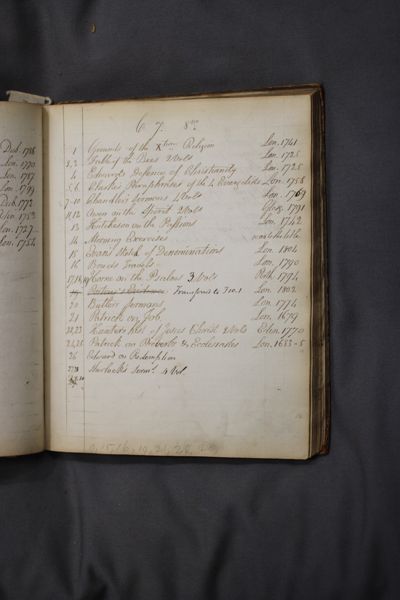 Dub 1786
Lon. 1770
Lon. 1787
Lon. 1749
Dub 1772
Lon. 1727
Lon. 1754
C. 7. 8vo
1 Grounds of the Xtian Religion Lon. 1741
2, 3 Fable of the Bees 2 Vols Lon. 1725
4 Edwards Defence of Christianity Lon. 1726
5, 6 Clarkes Paraphrases of the 4 Evangelists Lon. 1758
7-10 Chandlers Sermons 4 Vols Lon. 1769
11, 12 Owen on the Spirit 2 Vols Glasg. 1791
13 Hutcheson on the Passions Lon. 1742
14 Morning Exercises wants the title
15 Evans' Sketch of Denominations Lon. 1804
16 Travels Lon. 1790
17, 18, 19 Horne on the Psalms 3 Vols Perth. 1794
19 Transfered to Lon. 1802
20 Butlers Sermons Lon. 1774
21 Patrick on Job Lon. 1679
22, 23 Hunters hist of Jesus Christ 2 Vols Edin. 1770
24, 25 Patrick on Proverbs & Ecclesiastes Lon. 1683-5
26 Edward on Redemption
27, 28 Sherlock's Serms. 4 Vol